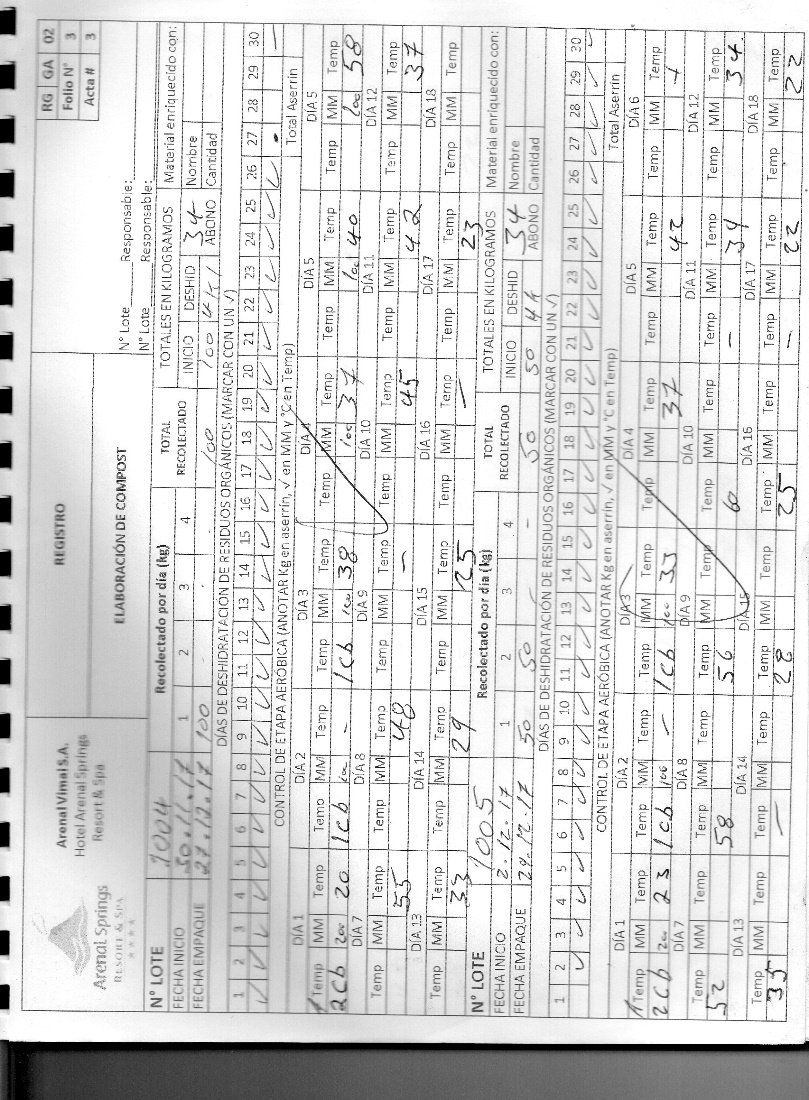 Arenal Springs
RESORT & SPA
Arenal Vimal S.A.
Hotel Arenal Springs
Resort & Spa
REGISTRO
ELABORACIÓN DE COMPOST
RG GA 02
Folio N° 3
Acta # 3
N° Lote______ Responsable:
N° Lote______ Responsable:
N° LOTE 1004 Recolectado por día (kg) TOTAL RECOLECTADO TOTALES EN KILOGRAMOS Material enriquecido con:
FECHA INICIO 30.11.17 1 2 3 4 INICIO DESHID 34 Nombre
FECHA EMPAQUE 27.12.17 100 100 100 ABONO Cantidad
DÍAS DE DESHIDRATACIÓN DE RESIDUOS ORGÁNICOS (MARCAR CON UN √)
1 2 3 4 5 6 7 8 9 10 11 12 13 14 15 16 17 18 19 20 21 22 23 24 25 26 27 28 29 30
CONTROL DE ETAPA AERÓBICA (ANOTAR Kg en aserrín, √ en MM y °C en Temp) Total Aserrin
DÍA 1 DÍA 2 DÍA 3 DÍA 4 DÍA 5 DÍA 5
Temp MM Temp Temp MM Temp Temp MM Temp Temp MM Temp Temp MM Temp Temp MM Temp
20 - 38 100 37 100 40 100 58
DÍA 7 DÍA 8 DÍA 9 DÍA 10 DÍA 11 DÍA 12
Temp MM Temp Temp MM Temp Temp MM Temp Temp MM Temp Temp MM Temp Temp MM Temp
55 48 - 45 42 37
DÍA 13 DÍA 14 DÍA 15 DÍA 16 DÍA 17 DÍA 18
Temp MM Temp Temp MM Temp Temp MM Temp Temp MM Temp Temp MM Temp Temp MM Temp
33 29 25 - 23
N° LOTE 1005 Recolectado por día (kg) TOTAL RECOLECTADO TOTALES EN KILOGRAMOS Material enriquecido con:
FECHA INICIO 2.12.17 1 2 3 4 INICIO DESHID 34 Nombre
FECHA EMPAQUE 29.12.17 50 50 - - 50 50 ABONO Cantidad
DÍAS DE DESHIDRATACIÓN DE RESIDUOS ORGÁNICOS (MARCAR CON UN √)
1 2 3 4 5 6 7 8 9 10 11 12 13 14 15 16 17 18 19 20 21 22 23 24 25 26 27 28 29 30
CONTROL DE ETAPA AERÓBICA (ANOTAR Kg en aserrín, √ en MM y °C en Temp) Total Aserrin
DÍA 1 DÍA 2 DÍA 3 DÍA 4 DÍA 5 DÍA 6
Temp MM Temp Temp MM Temp Temp MM Temp Temp MM Temp Temp MM Temp Temp MM Temp
23 100 - 100 33 37 42
DÍA 7 DÍA 8 DÍA 9 DÍA 10 DÍA 11 DÍA 12
Temp MM Temp Temp MM Temp Temp MM Temp Temp MM Temp Temp MM Temp Temp MM Temp
52 58 56 - 34
DÍA 13 DÍA 14 DÍA 15 DÍA 16 DÍA 17 DÍA 18
Temp MM Temp Temp MM Temp Temp MM Temp Temp MM Temp Temp MM Temp Temp MM Temp
35 - 28 25 - 22 22